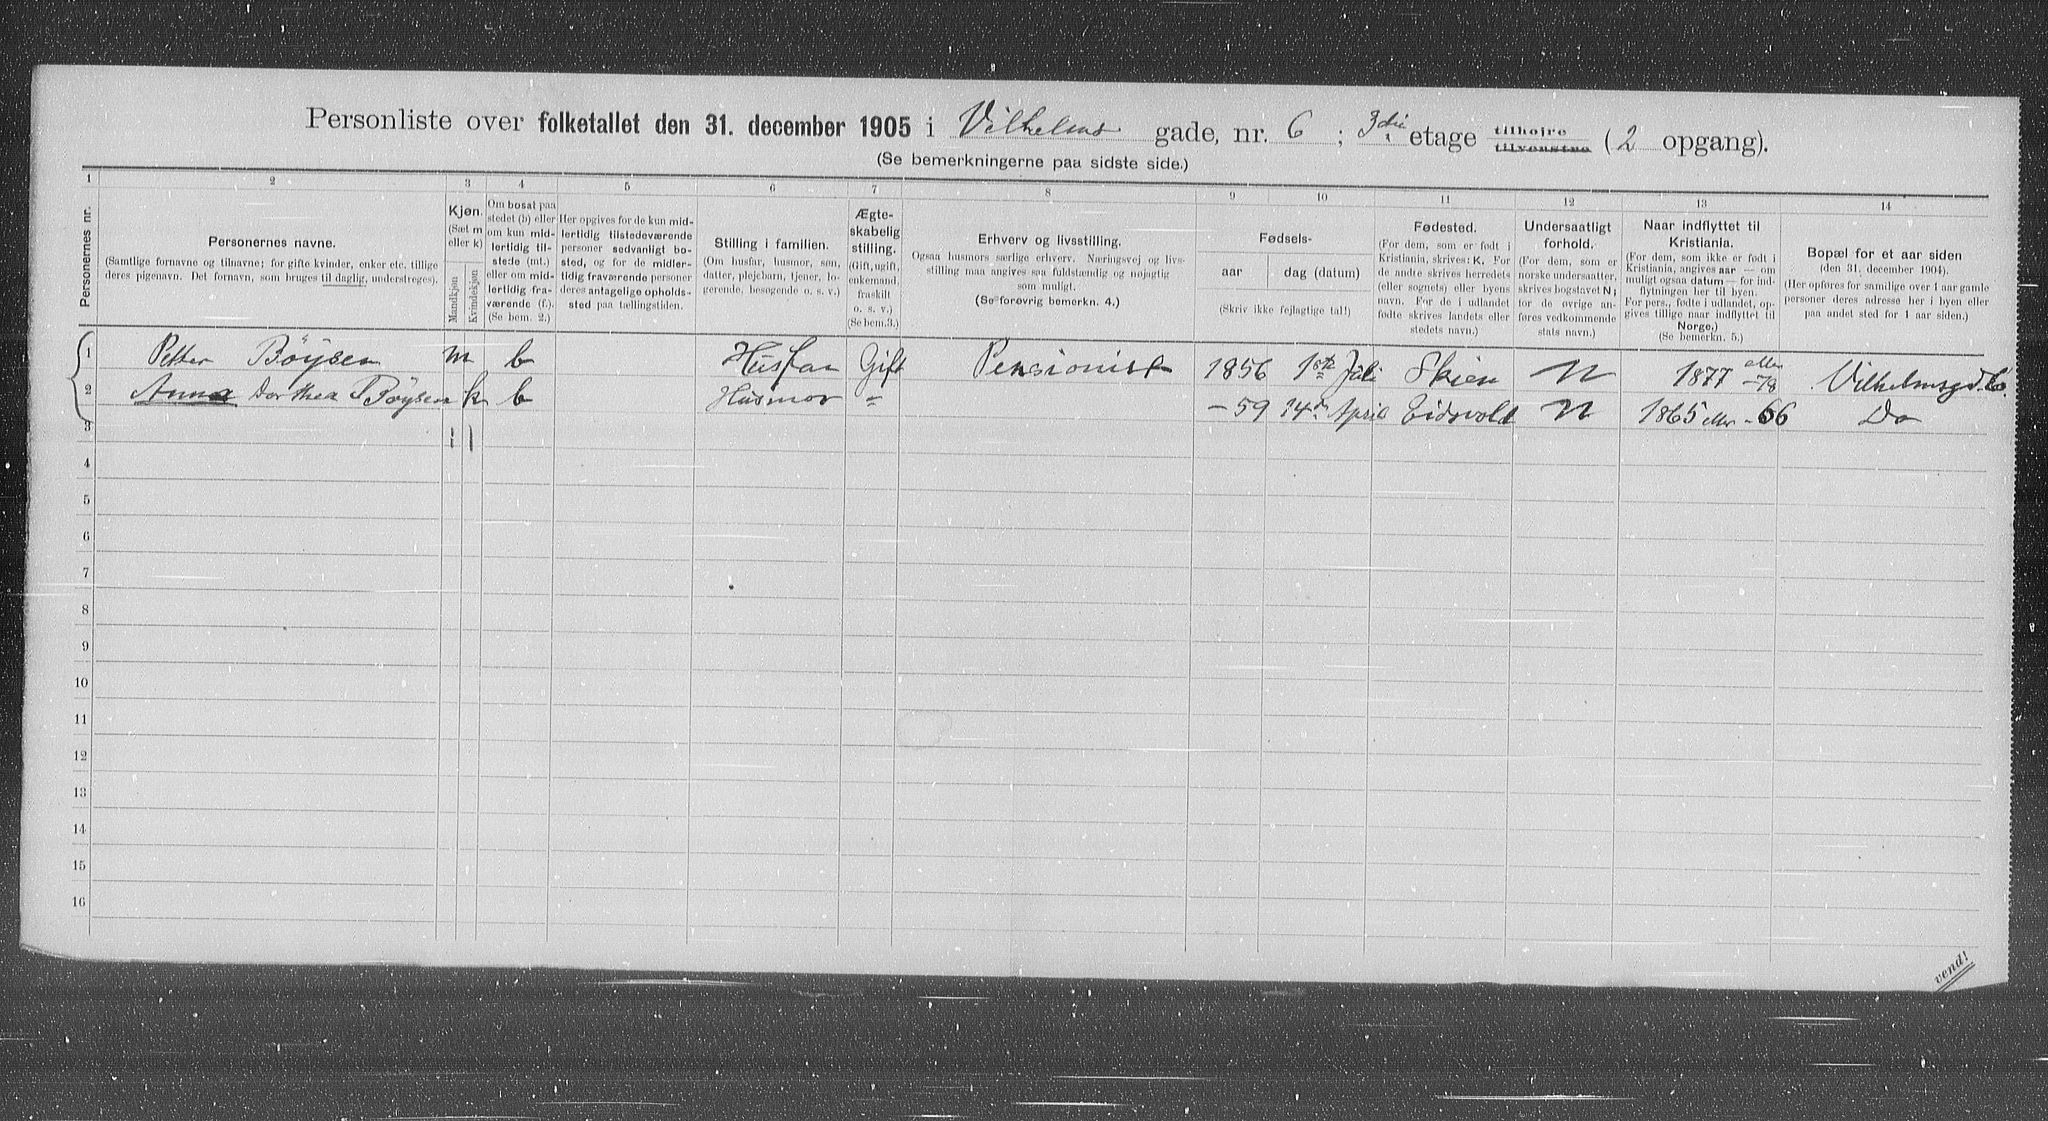 Personliste over folketallet den 31. december 1905 i Vilhelms gade, nr. 6 ; 3die etage tilhøjre tilvenstre (2 opgang).
(Se bemerkningerne paa sidste side.)
1 2 3 4 5 6 7 8 9 10 11 12 13 14
Personernes nr.
Personernes navne.
(Samtlige fornavne og tilnavne; for gifte kvinder, enker etc. tillige
deres pigenavn. Det fornavn, som bruges til daglig, understreges).
Kjøn.
(Sæt m
eller k)
Mandkjøn
Kvindekjøn
Om bosat paa
stedet (b) eller
om kun mid-
lertidig til-
stede (mt.)
eller om mid-
lertidig fra-
værende (f.).
(Se bem. 2.)
Her opgives for de kun mid-
lertidig tilstedeværende
personer sedvanligt bo-
sted, og for de midler-
tidig fraværende personer
deres antagelige opholds-
sted paa tællingstiden.
Stilling i familien.
(Om husfar, husmor, søn,
datter, plejebarn, tjener, lo-
gerende, besøgende o. s. v.)
Ægte-
skabelig
stilling.
(Gift, ugift,
enkemand,
fraskilt
o. s. v.)
(Se bem.3.)
Erhverv og livsstilling.
Ogsaa husmors særlige erhverv. Næringsvej og livs-
stilling maa angives saa fuldstændig og nøjagtig
som muligt.
(Se forøvrig bemerkn. 4.)
Fødsels-
aar dag (datum)
(Skriv ikke fejlagtige tal!)
Fødested.
(For dem, som er født i
Kristiania, skrives: K. For
de andre skrives herredets
(eller sognets) eller byens
navn. For de i udlandet
fødte skrives landets eller
stedets navn.)
Undersaatligt
forhold.
(For dem, som er
norske undersaatter,
skrives bogstavet N;
for de øvrige an-
føres vedkommende
stats navn.)
Naar indflyttet til
Kristiania.
(For dem, som ikke er født i
Kristiania, angives aar — om
muligt ogsaa datum — for ind-
flytningen her til byen.
For pers., fødte i udlandet, op-
gives tillige naar indflyttet til
Norge.)
(Se bemerkn. 5.)
Bopæl for et aar siden
(den 31. december 1904).
(Her opføres for samtlige over 1 aar gamle
personer deres adresse her i byen eller
paa andet sted for 1 aar siden.)
1 Petter Böysen m b Husfar Gift Pensionist 1856 1ste Juli Skien N 1877 eller -78 Vilhelmsgd. 6.
2 Anna Dorthea Böysen k b Husmor " -59 14de April Eidsvold N 1865 eller -66 Do
3 1 1
4
5
6
7
8
9
10
11
12
13
14
15
16
vend!